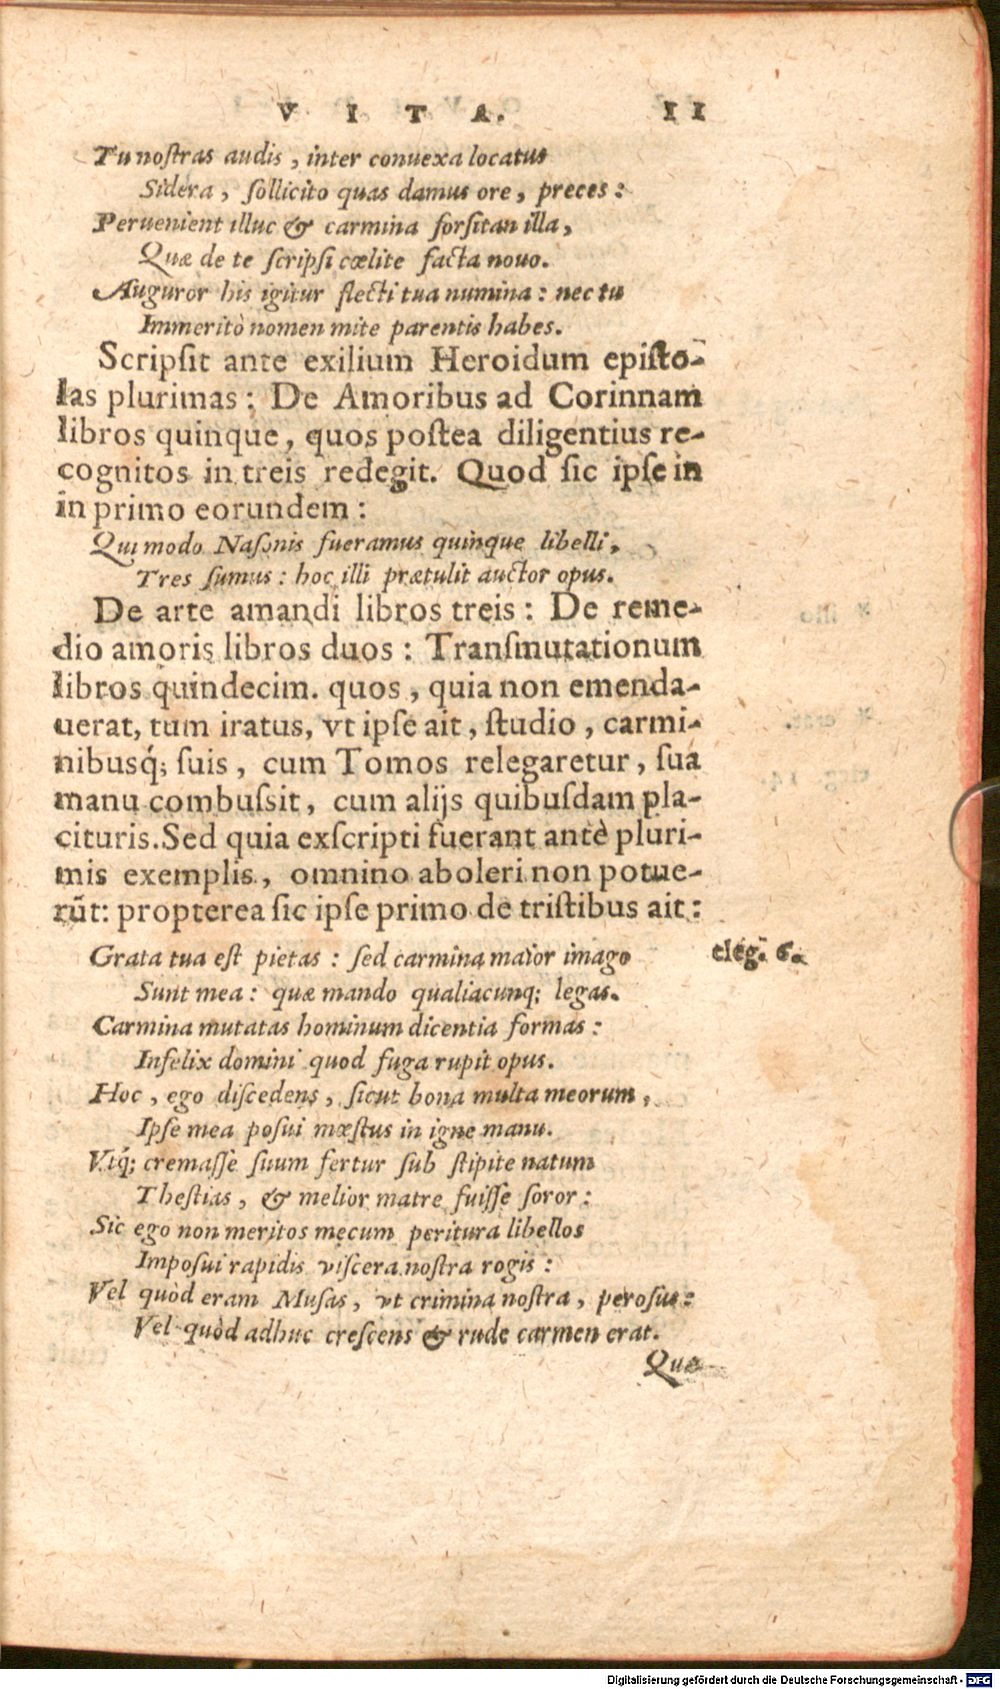 VITA. II
Tu nostras audis, inter conuexa locatus
Sidera, sollicito quas damus ore, preces:
Peruenient illuc & carmina forsitan illa,
Quæ de te scripsi cœlite facta nouo.
Auguror his igitur flecti tua numina: nec tu
Immeritò nomen mite parentis habes.
Scripsit ante exilium Heroidum episto-
las plurimas: De Amoribus ad Corinnam
libros quinque, quos postea diligentius re-
cognitos in treis redegit. Quod sic ipse in
in primo eorundem:
Qui modo Nasonis fueramus quinque libelli,
Tres sumus: hoc illi prætulit auctor opus.
De arte amandi libros treis: De reme-
dio amoris libros duos: Transmutationum
libros quindecim. quos, quia non emenda-
uerat, tum iratus, vt ipse ait, studio, carmi-
nibusq́; suis, cum Tomos relegaretur, sua
manu combussit, cum alijs quibusdam pla-
cituris. Sed quia exscripti fuerant antè pluri-
mis exemplis, omnino aboleri non potue-
rũt: propterea sic ipse primo de tristibus ait:
Grata tua est pietas: sed carmina maior imago
eleg. 6.
Sunt mea: quæ mando qualiacunq; legas.
Carmina mutatas hominum dicentia formas:
Infelix domini quod fuga rupit opus.
Hoc, ego discedens, sicut bona multa meorum,
Ipse mea posui mœstus in igne manu.
Vtq́; cremasse suum fertur sub stipite natum
Thestias, & melior matre fuisse soror:
Sic ego non meritos mecum peritura libellos
Imposui rapidis viscera nostra rogis:
Vel quòd eram Musas, vt crimina nostra, perosus:
Vel quòd adhuc crescens & rude carmen erat.
Quæ
Digitalisierung gefördert durch die Deutsche Forschungsgemeinschaft - DFG